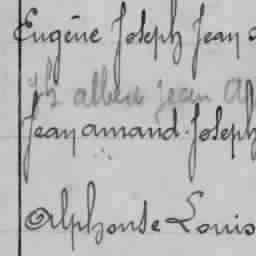 Eugène Joseph Jean
albert jean
Jean amand Joseph
Alphonse Louis